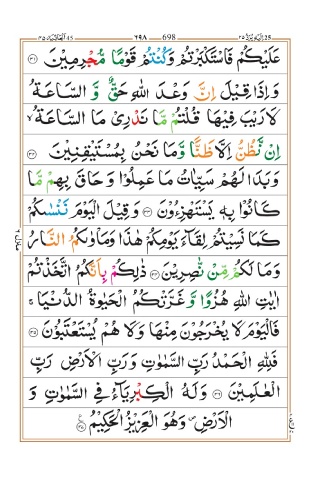 عَلَيۡكُمۡ فَاسۡتَكۡبَرۡتُمۡ وَكُنۡتُمۡ قَوۡمًا مُّجۡرِمِيۡنَ ﴿۳۱﴾
وَاِذَا قِيۡلَ اِنَّ وَعۡدَ اللّٰهِ حَقٌّ وَّ السَّاعَةُ
لَا رَيۡبَ فِيۡهَا قُلۡتُمۡ مَّا نَدۡرِىۡ مَا السَّاعَةُ ۙ
اِنۡ نَّظُنُّ اِلَّا ظَنًّا وَّمَا نَحۡنُ بِمُسۡتَيۡقِنِيۡنَ ﴿۳۲﴾
وَبَدَا لَهُمۡ سَيِّاٰتُ مَا عَمِلُوۡا وَ حَاقَ بِهِمۡ مَّا
كَانُوۡا بِهٖ يَسۡتَهۡزِءُوۡنَ ﴿۳۳﴾ وَقِيۡلَ الۡيَوۡمَ نَنۡسٰٮكُمۡ
كَمَا نَسِيۡتُمۡ لِقَآءَ يَوۡمِكُمۡ هٰذَا وَمَاۡوٰٮكُمُ النَّارُ
وَمَا لَكُمۡ مِّنۡ نّٰصِرِيۡنَ ﴿۳۴﴾ ذٰلِكُمۡ بِاَنَّكُمُ اتَّخَذۡتُمۡ
اٰيٰتِ اللّٰهِ هُزُوًا وَّ غَرَّتۡكُمُ الۡحَيٰوةُ الدُّنۡيَا ۚ
فَالۡيَوۡمَ لَا يُخۡرَجُوۡنَ مِنۡهَا وَلَا هُمۡ يُسۡتَعۡتَبُوۡنَ ﴿۳۵﴾
فَلِلّٰهِ الۡحَمۡدُ رَبِّ السَّمٰوٰتِ وَ رَبِّ الۡاَرۡضِ رَبِّ
الۡعٰلَمِيۡنَ ﴿۳۶﴾ وَلَهُ الۡكِبۡرِيَآءُ فِى السَّمٰوٰتِ وَ
الۡاَرۡضِ ۖ وَهُوَ الۡعَزِيۡزُ الۡحَكِيۡمُ ﴿۳۷﴾
698
۶۹۸